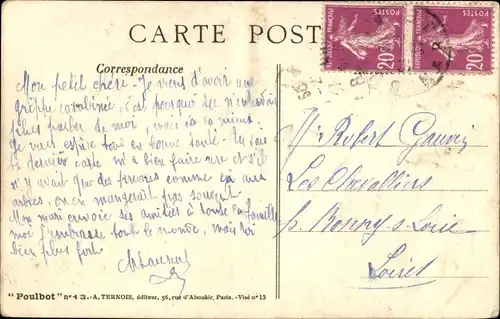 CARTE POST
POSTES
20c
POSTES
20c
Correspondance
Mon petit chéri - Je viens d'avoir une
grippe carabinée, c'est pourquoi tu n'entendais
plus parler de moi, mais ça va mieux.
Je vous espère tous en bonne santé. Ta
dernière carte m'a bien faire rire et s'il
n'y avait que des prunes comme ça aux
arbres, on en mangerait pas souvent.
Mon mari envoie ses amitiés à toute la famille
moi j'embrasse tout le monde, mais toi
bien plus fort.
Mr Robert Gauvez
Les Chevalliers
p. Bonny s/ Loire
Loiret
"Poulbot" n° 13.-A. TERNOIS, éditeur, 56, rue d'Aboukir, Paris. - Visé n° 13